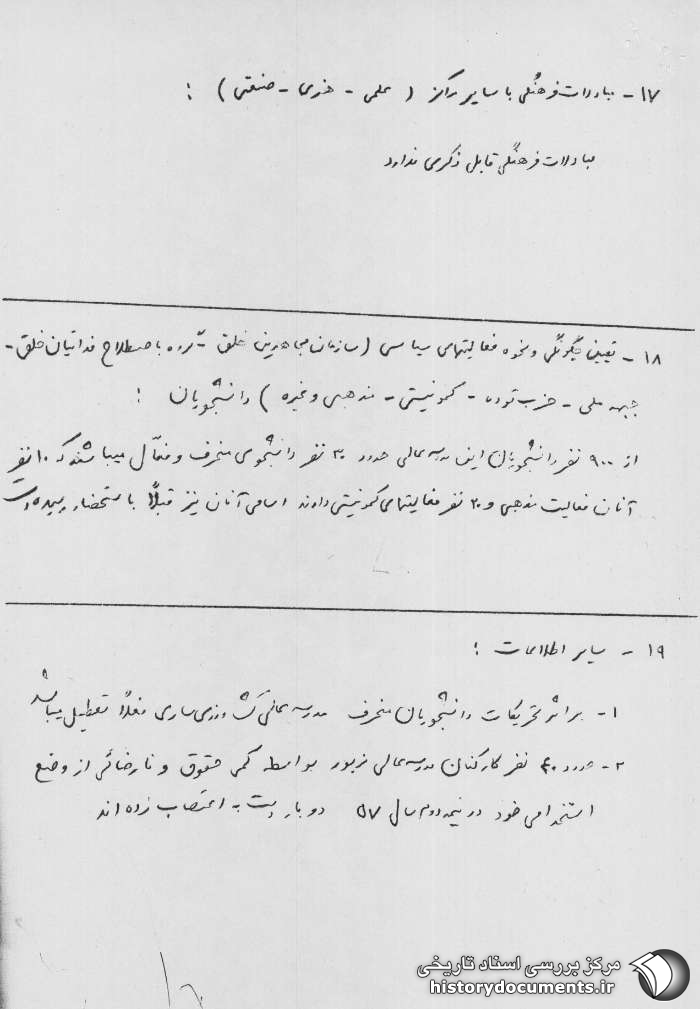 ۱۷ - مبادلات فرهنگی با سایر مراکز ( علمی - هنری - صنعتی ) :
مبادلات فرهنگی قابل ذکری ندارد
۱۸ - تعیین چگونگی و نحوه فعالیتهای سیاسی ( سازمان مجاهدین خلق - گروه باصطلاح فدائیان خلق -
جبهه ملی - حزب توده - کمونیستی - مذهبی و غیره ) دانشجویان :
از ۹۰۰ نفر دانشجویان این مدرسه عالی حدود ۳۰ نفر دانشجوی منحرف و فعال میباشند که ۱۰ نفر
آنان فعالیت مذهبی و ۲۰ نفر فعالیتهای کمونیستی دارند اسامی آنان نیز قبلاً باستحضار رسیده است
۱۹ - سایر اطلاعات :
۱- بر اثر تحریکات دانشجویان منحرف مدرسه عالی کشاورزی ساری فعلاً تعطیل میباشد
۲- حدود ۴۰ نفر کارکنان مدرسه عالی مزبور بواسطه کمی حقوق و نارضائی از وضع
استخدامی خود در نیمه دوم سال ۵۷ دوبار دست به اعتصاب زده اند
مرکز بررسی اسناد تاریخی
historydocuments.ir